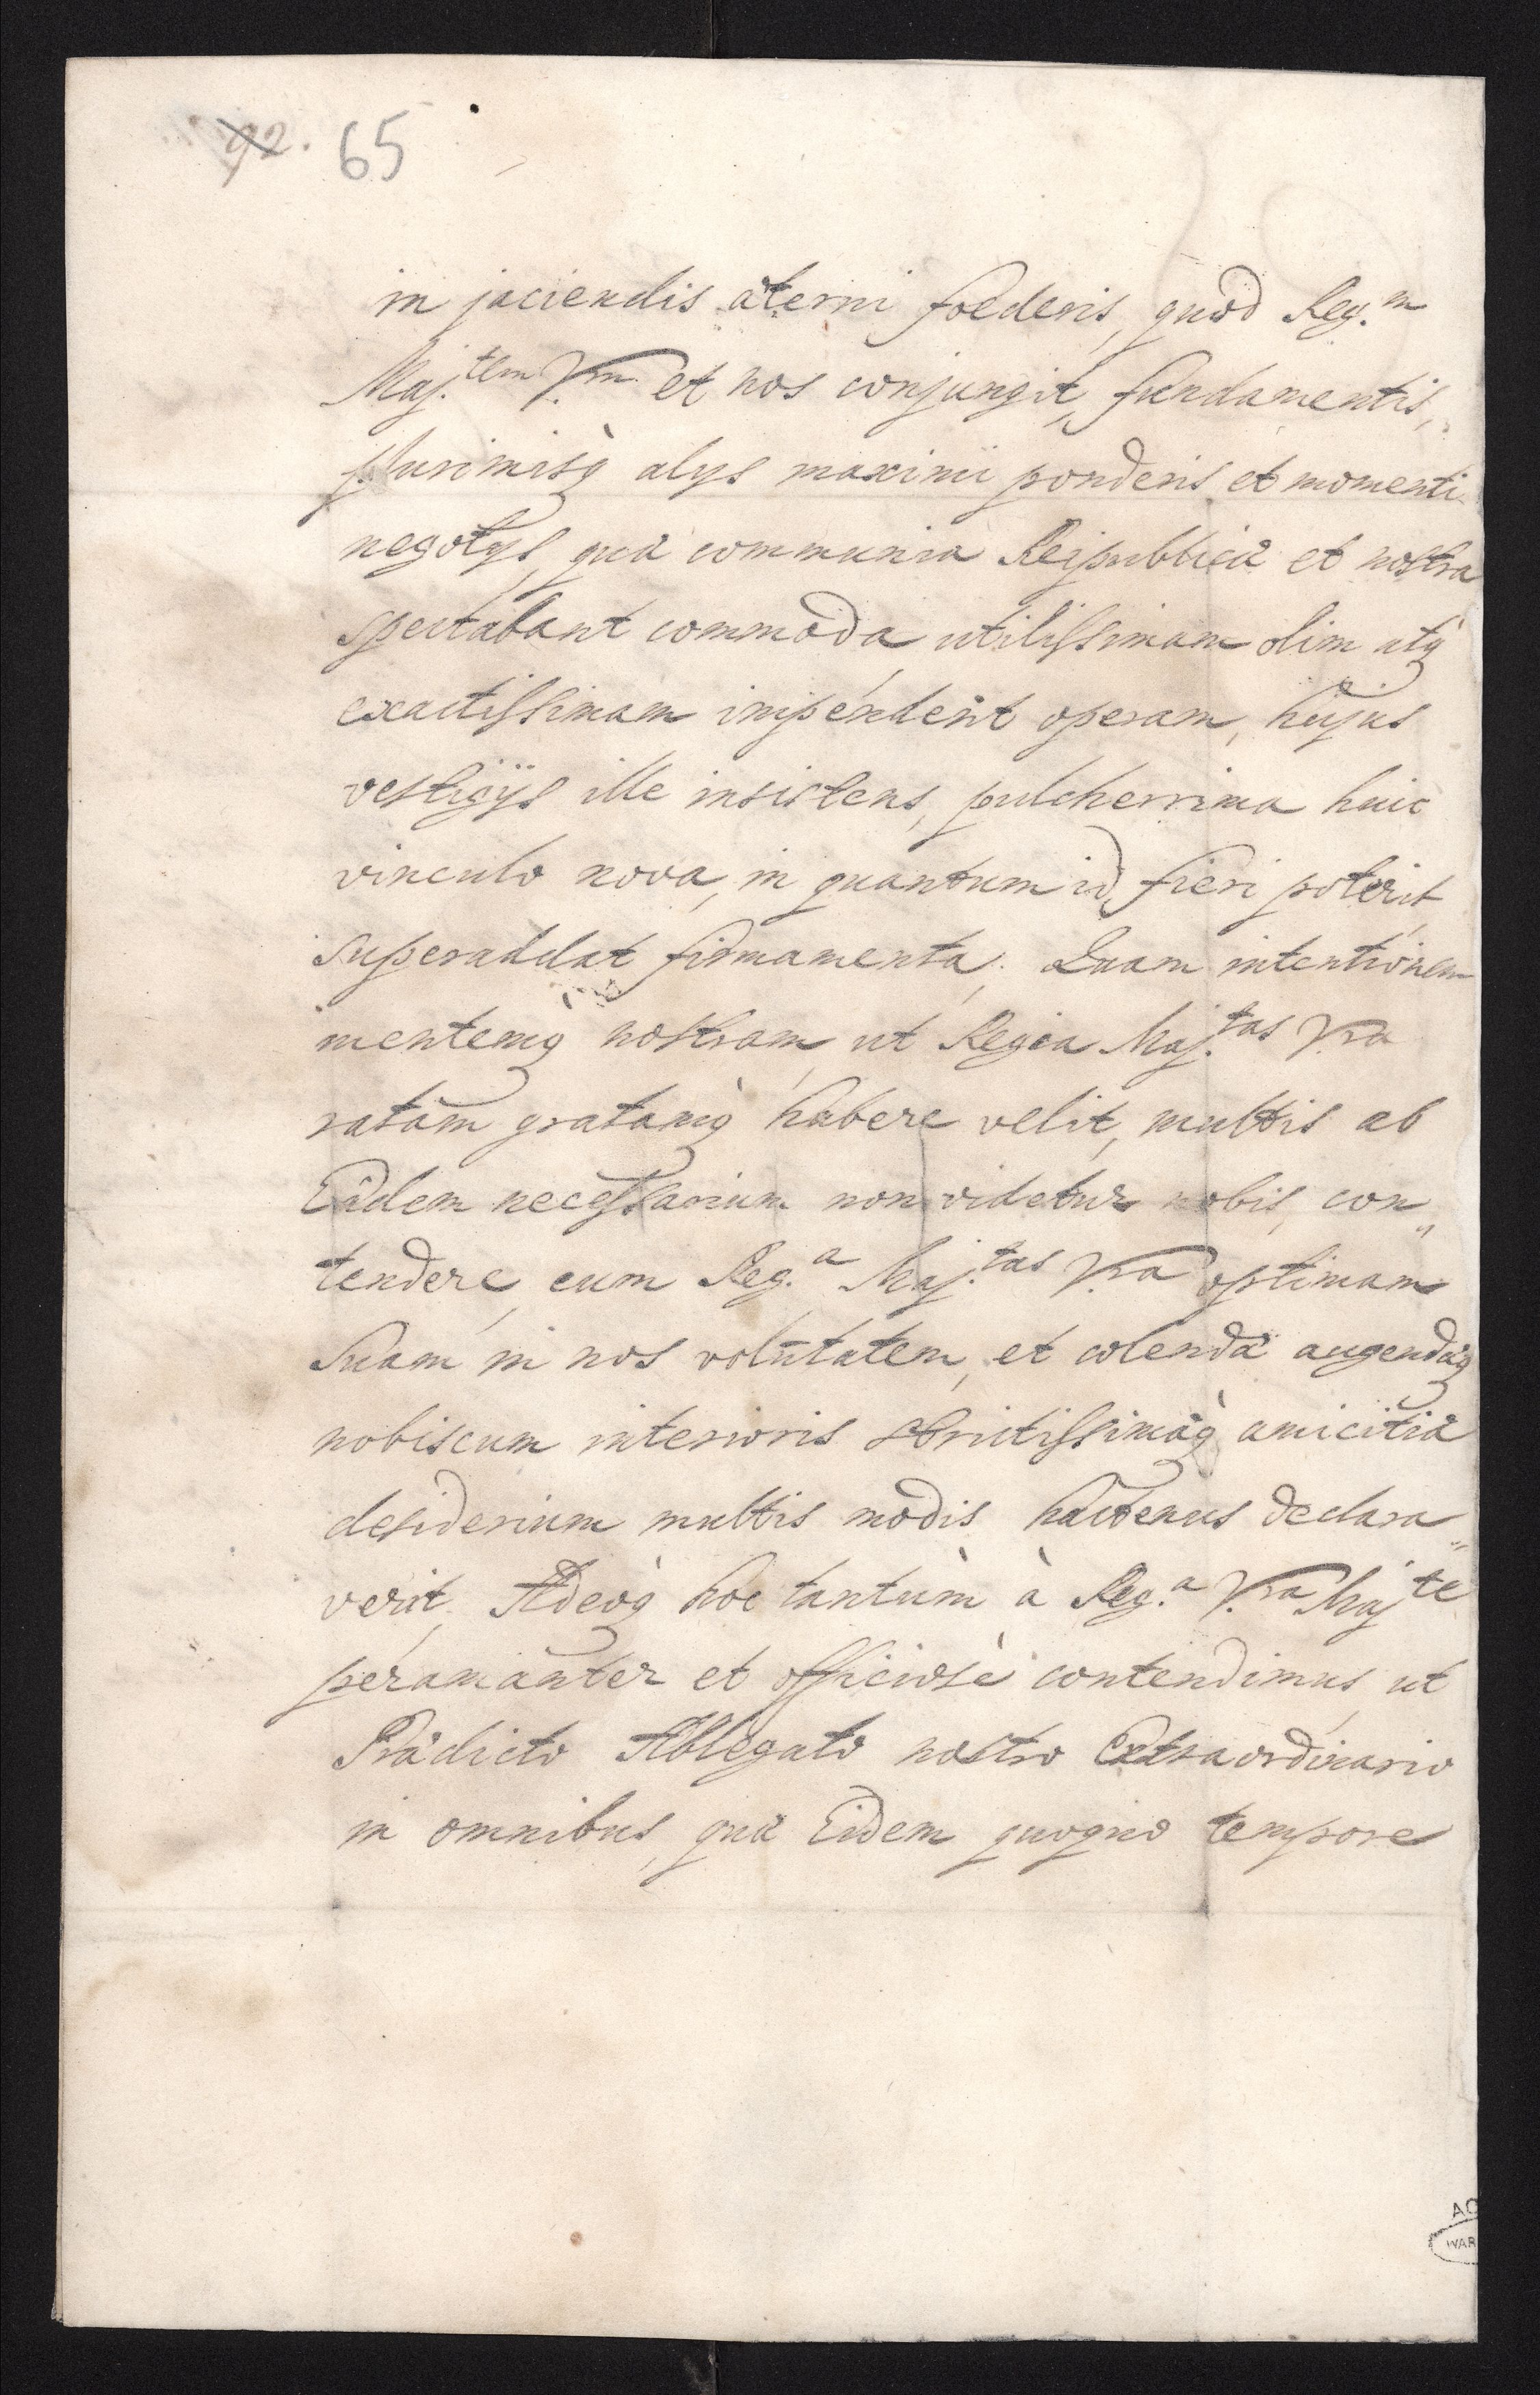 92. 65
in jaciendis æterni foederis, quod Reg.m
Maj.tem V.rm et nos conjungit, fundamentis,
plurimisq̀ alys maximi ponderis et momenti
negotys, quæ communia Reipublicæ et nostra
spectabant commoda, utilissimam olim atq̀
exactissimam impenderit operam, hujus
vestigÿs ille insistens, pulcherrima huic
vinculo nova, in quantum id fieri poterit
superaddat firmamenta. Quam intentionem
mentemq̀ nostram, ut Regia Maj.tas V.ra
ratam gratamq̀ habere velit, multis ab
Eâdem necessarium non videtur nobis, con„
tendere, cum Reg.a Maj.tas V.ra optimam
Suam in nos volūtatem, et colendæ augendæq̀
nobiscum interioris strictissimæq̀ amicitiæ
desiderium multis modis hactenus declara„
verit. Adeoq̀ hoc tantùm à Reg.a V.ra Maj.te
peramanter et officiosè contendimus, ut
Prædicto Ablegato nostro Extraordinario
in omnibus, quæ Eidem quoquo tempore
AG
WAR